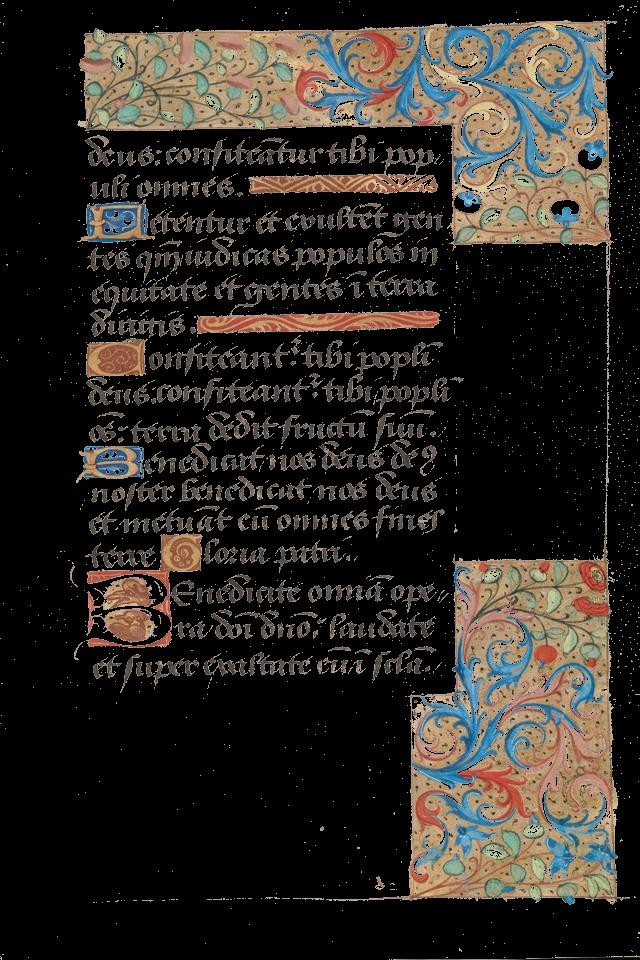 deus: confiteātur tibi pop-
uli omnes.
Letentur et exultēt gen
tes qm̄ iudicas populos in
equitate et gentes ī terra
dirigis.
Confiteant᷑ tibi poplī
deus: confiteant᷑ tibi poplī
oēs: terra dedit fructū suū.
Benedicat nos deus deꝰ
noster benedicat nos deus
et metuāt eū omnes fines
terre Gloria patri.
BEnedicite omīa ope-
ra dn̄i dn̄o: laudate
et super exaltate eū ī scl̄a.